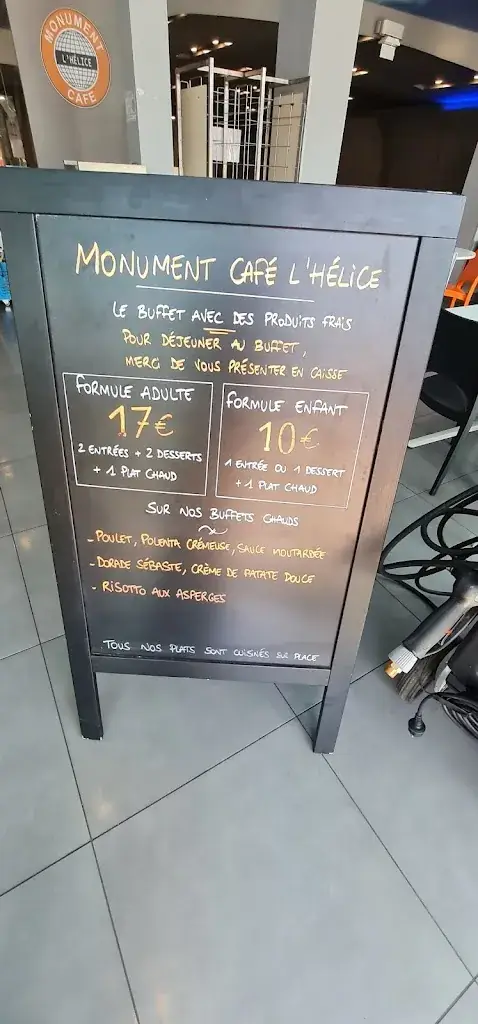 MONUMENT
L'HÉLICE
CAFE
MONUMENT CAFÉ L'HÉLICE
LE BUFFET AVEC DES PRODUITS FRAIS
POUR DÉJEUNER AU BUFFET,
MERCI DE VOUS PRÉSENTER EN CAISSE
FORMULE ADULTE
17€
2 ENTRÉES + 2 DESSERTS
+ 1 PLAT CHAUD
FORMULE ENFANT
10€
1 ENTRÉE OU 1 DESSERT
+ 1 PLAT CHAUD
SUR NOS BUFFETS CHAUDS
- POULET, POLENTA CRÉMEUSE, SAUCE MOUTARDÉE
- DORADE SÉBASTE, CRÈME DE PATATE DOUCE
- RISOTTO AUX ASPERGES
TOUS NOS PLATS SONT CUISINÉS SUR PLACE